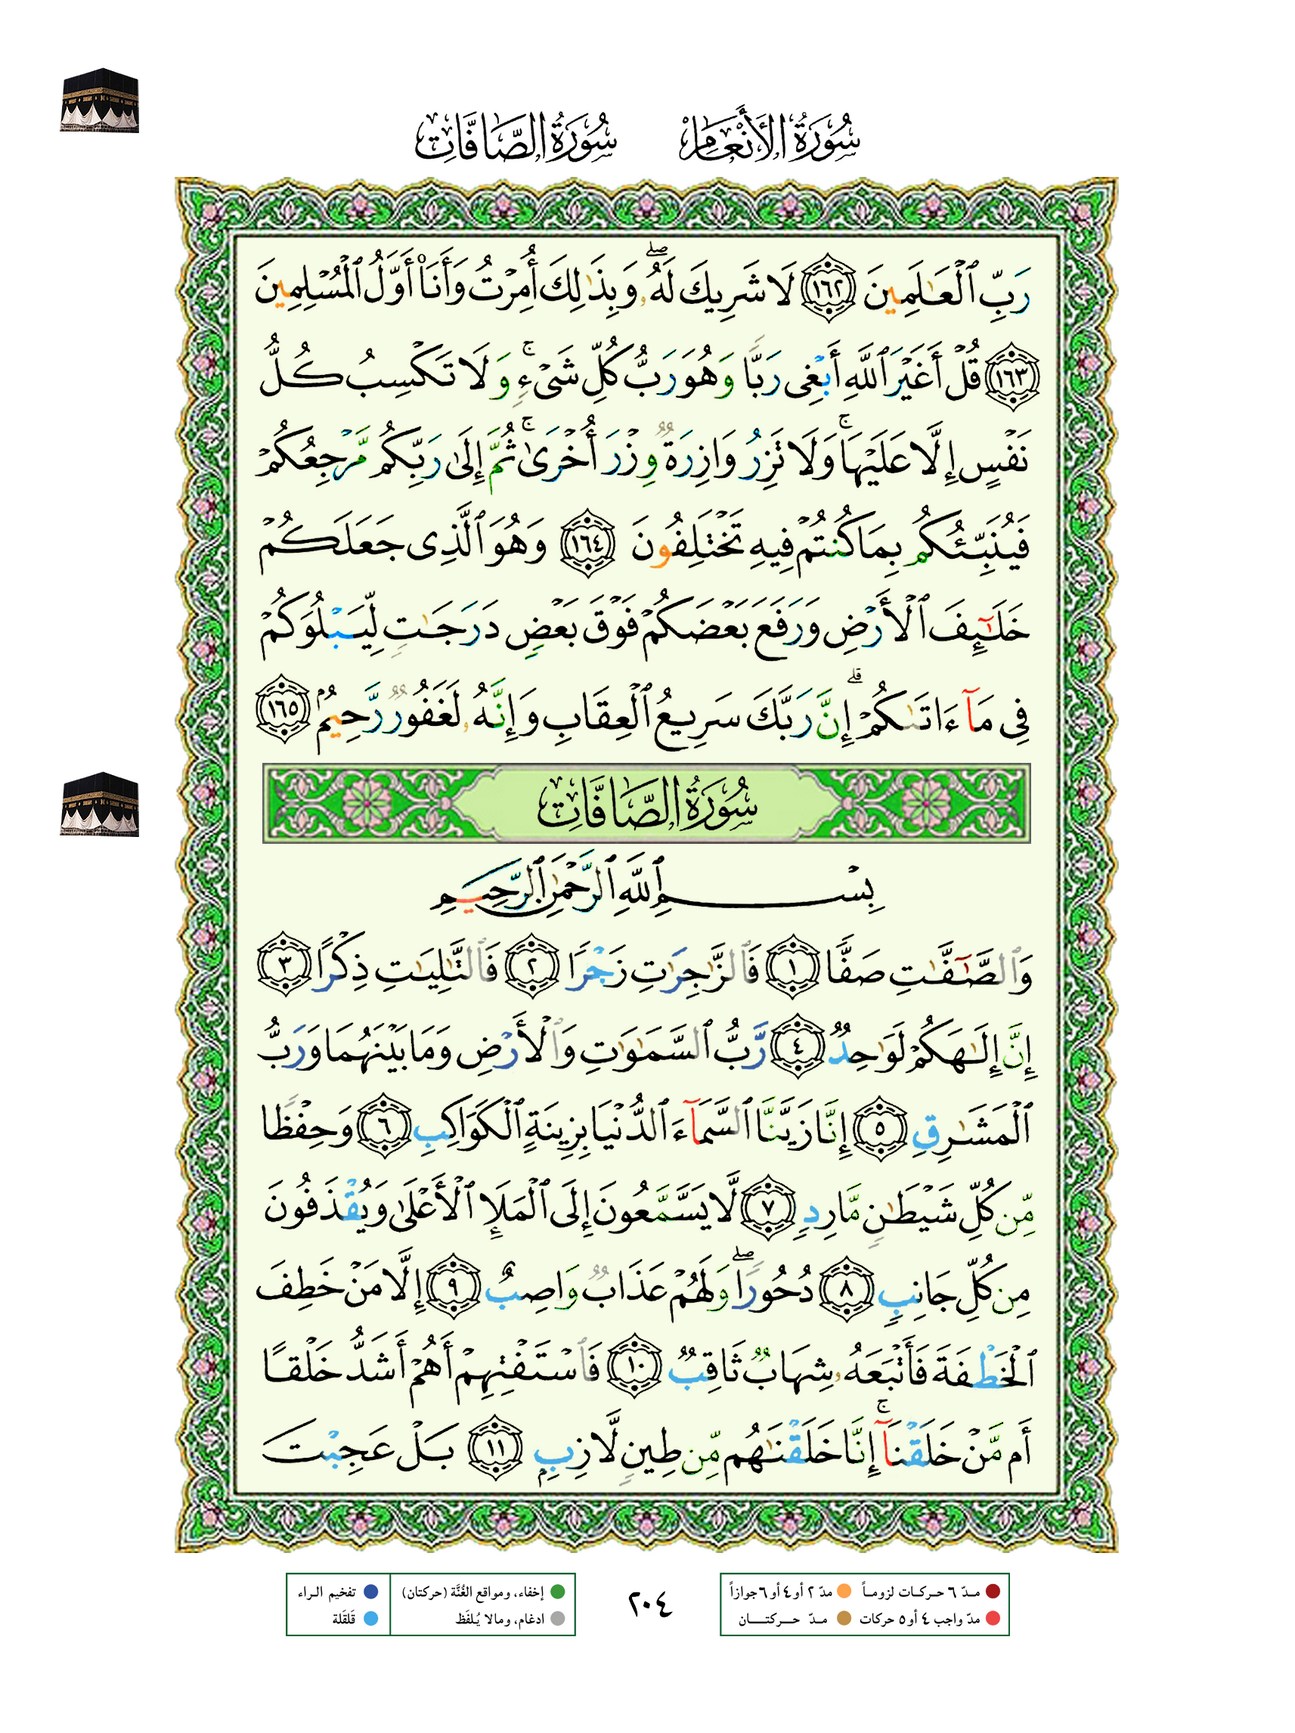 سُورَةُ الأَنْعَامِ سُورَةُ الصَّافَّاتِ
رَبِّ ٱلْعَـٰلَمِينَ ١٦٢ لَا شَرِيكَ لَهُۥۖ وَبِذَٰلِكَ أُمِرْتُ وَأَنَا۠ أَوَّلُ ٱلْمُسْلِمِينَ
١٦٣ قُلْ أَغَيْرَ ٱللَّهِ أَبْغِى رَبًّا وَهُوَ رَبُّ كُلِّ شَىْءٍۚ وَلَا تَكْسِبُ كُلُّ
نَفْسٍ إِلَّا عَلَيْهَاۚ وَلَا تَزِرُ وَازِرَةٌ وِزْرَ أُخْرَىٰۚ ثُمَّ إِلَىٰ رَبِّكُم مَّرْجِعُكُمْ
فَيُنَبِّئُكُم بِمَا كُنتُمْ فِيهِ تَخْتَلِفُونَ ١٦٤ وَهُوَ ٱلَّذِى جَعَلَكُمْ
خَلَـٰٓئِفَ ٱلْأَرْضِ وَرَفَعَ بَعْضَكُمْ فَوْقَ بَعْضٍ دَرَجَـٰتٍ لِّيَبْلُوَكُمْ
فِى مَآ ءَاتَىٰكُمْۗ إِنَّ رَبَّكَ سَرِيعُ ٱلْعِقَابِ وَإِنَّهُۥ لَغَفُورٌ رَّحِيمٌۢ ١٦٥
سُورَةُ الصَّافَّاتِ
بِسْمِ ٱللَّهِ ٱلرَّحْمَـٰنِ ٱلرَّحِيمِ
وَٱلصَّـٰٓفَّـٰتِ صَفًّا ١ فَٱلزَّٰجِرَٰتِ زَجْرًا ٢ فَٱلتَّـٰلِيَـٰتِ ذِكْرًا ٣
إِنَّ إِلَـٰهَكُمْ لَوَٰحِدٌ ٤ رَّبُّ ٱلسَّمَـٰوَٰتِ وَٱلْأَرْضِ وَمَا بَيْنَهُمَا وَرَبُّ
ٱلْمَشَـٰرِقِ ٥ إِنَّا زَيَّنَّا ٱلسَّمَآءَ ٱلدُّنْيَا بِزِينَةٍ ٱلْكَوَاكِبِ ٦ وَحِفْظًا
مِّن كُلِّ شَيْطَـٰنٍ مَّارِدٍ ٧ لَّا يَسَّمَّعُونَ إِلَى ٱلْمَلَإِ ٱلْأَعْلَىٰ وَيُقْذَفُونَ
مِن كُلِّ جَانِبٍ ٨ دُحُورًاۖ وَلَهُمْ عَذَابٌ وَاصِبٌ ٩ إِلَّا مَنْ خَطِفَ
ٱلْخَطْفَةَ فَأَتْبَعَهُۥ شِهَابٌ ثَاقِبٌ ١٠ فَٱسْتَفْتِهِمْ أَهُمْ أَشَدُّ خَلْقًا
أَم مَّنْ خَلَقْنَآۚ إِنَّا خَلَقْنَـٰهُم مِّن طِينٍ لَّازِبٍ ١١ بَلْ عَجِبْتَ
مدّ ٦ حركات لزوماً مدّ ٢ أو ٤ أو ٦ جوازاً
مدّ واجب ٤ أو ٥ حركات مدّ حركتان
٢٠٤
إخفاء، ومواقع الغُنَّة (حركتان) تفخيم الراء
ادغام، ومالا يُلفَظ قلقلة